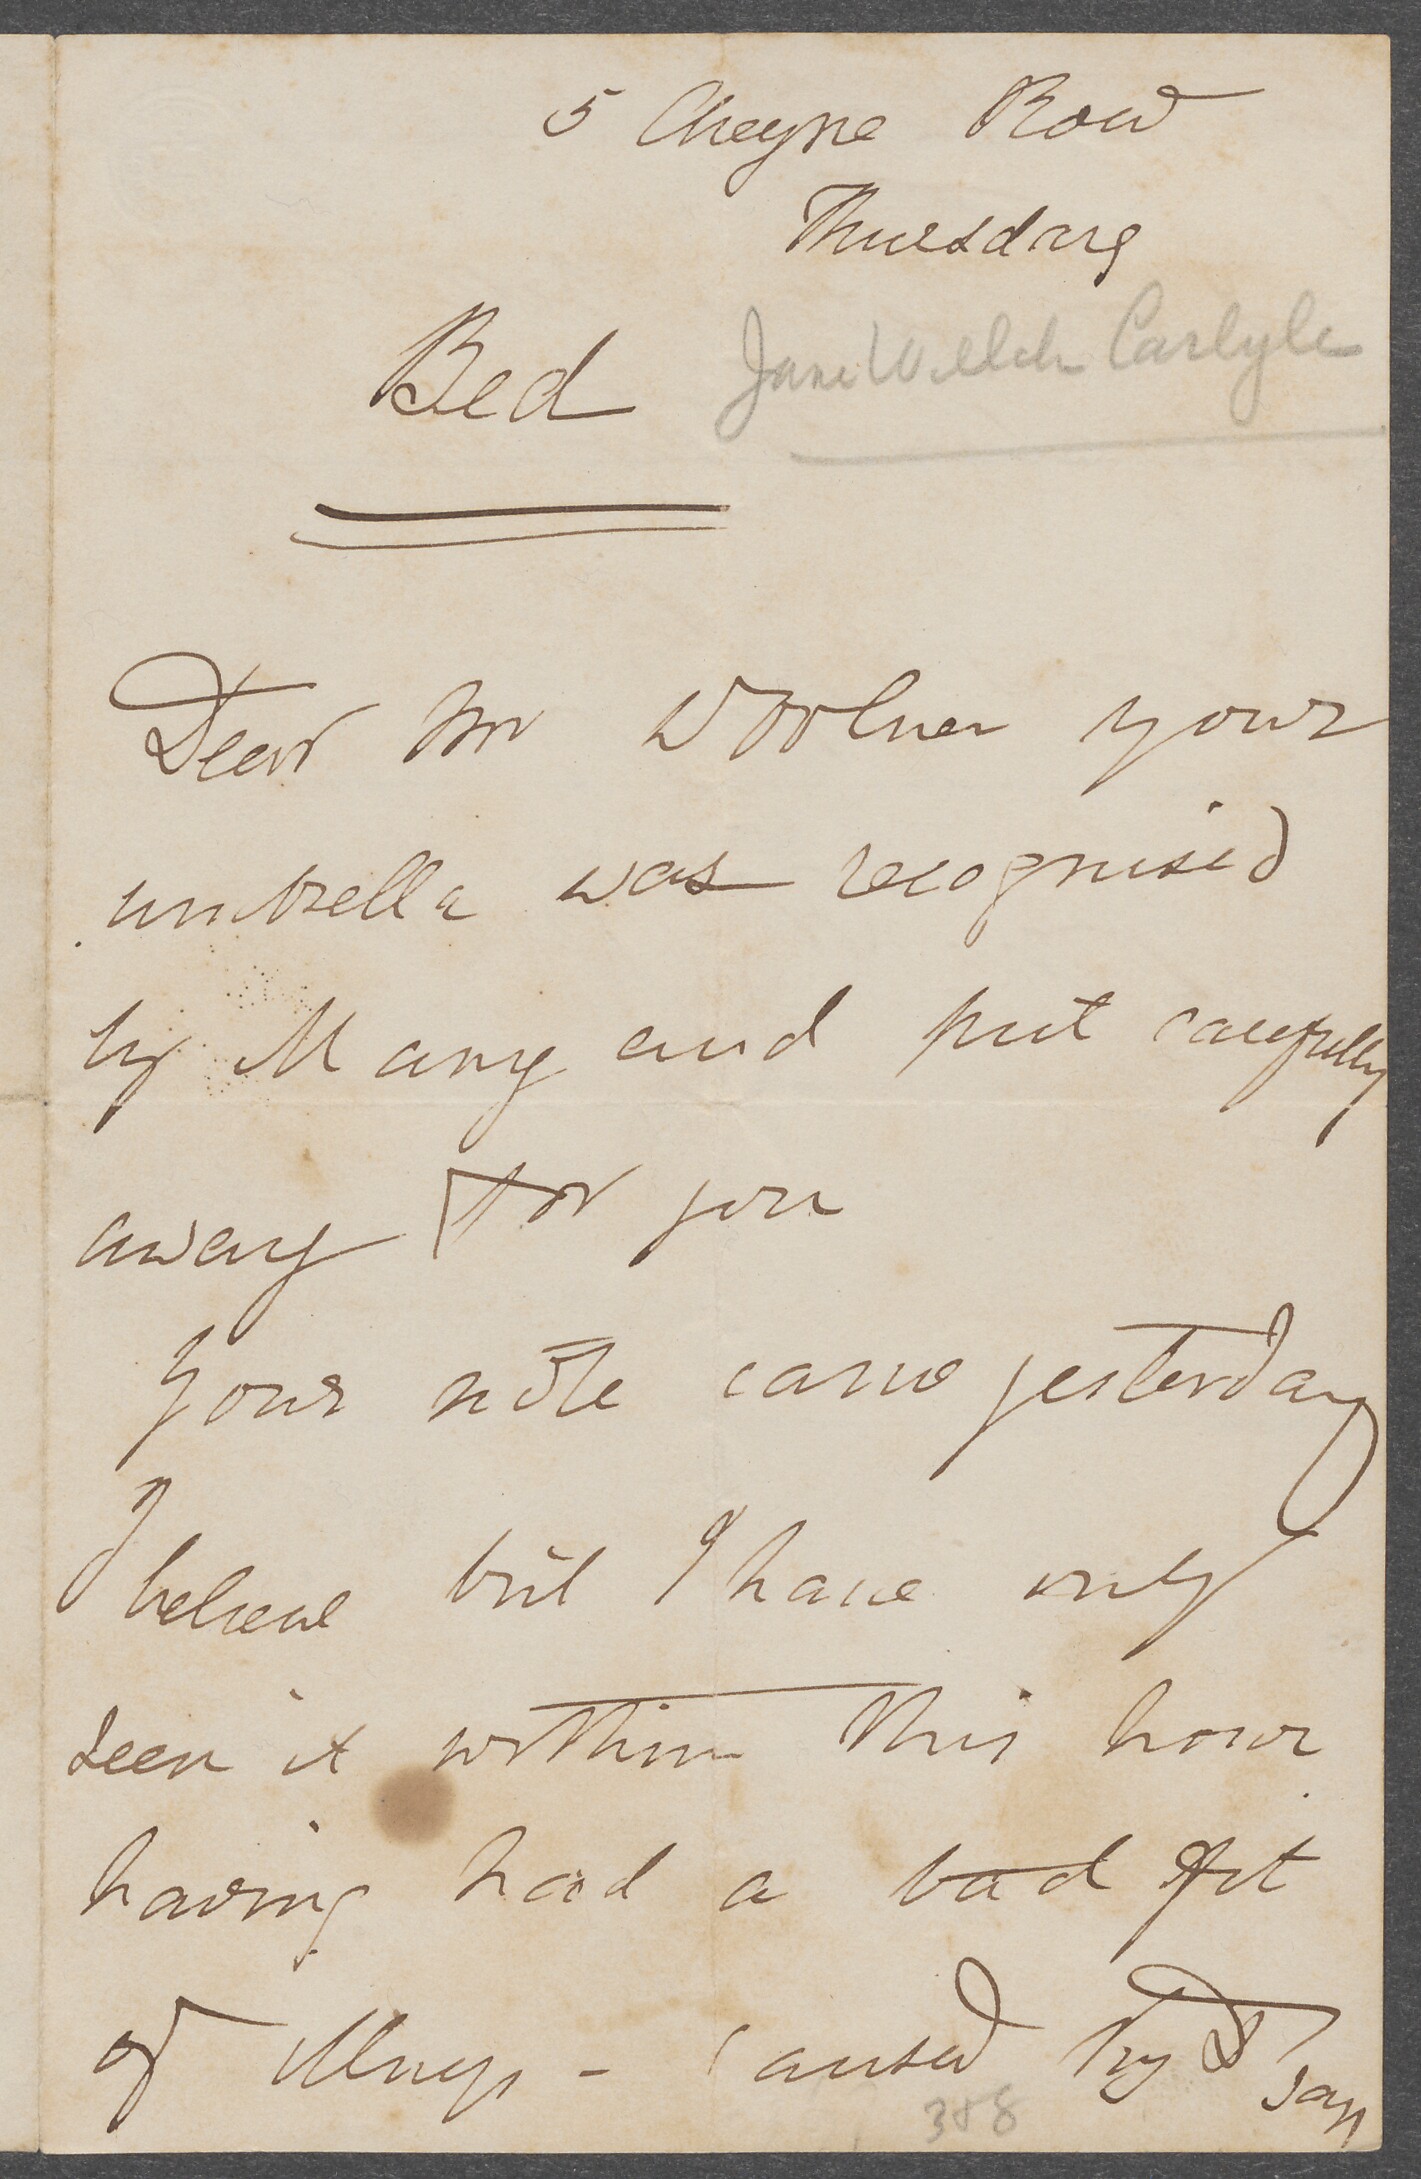 5 Cheyne Row
Thursday
Bed
Jane Welch Carlyle
Dear Mr Woolner your
umbrella was recognised
by Mary and put carefully
away for you
Your note came yesterday
I believe but I have only
seen it within this hour
having had a bad fit
of illness - caused by
358